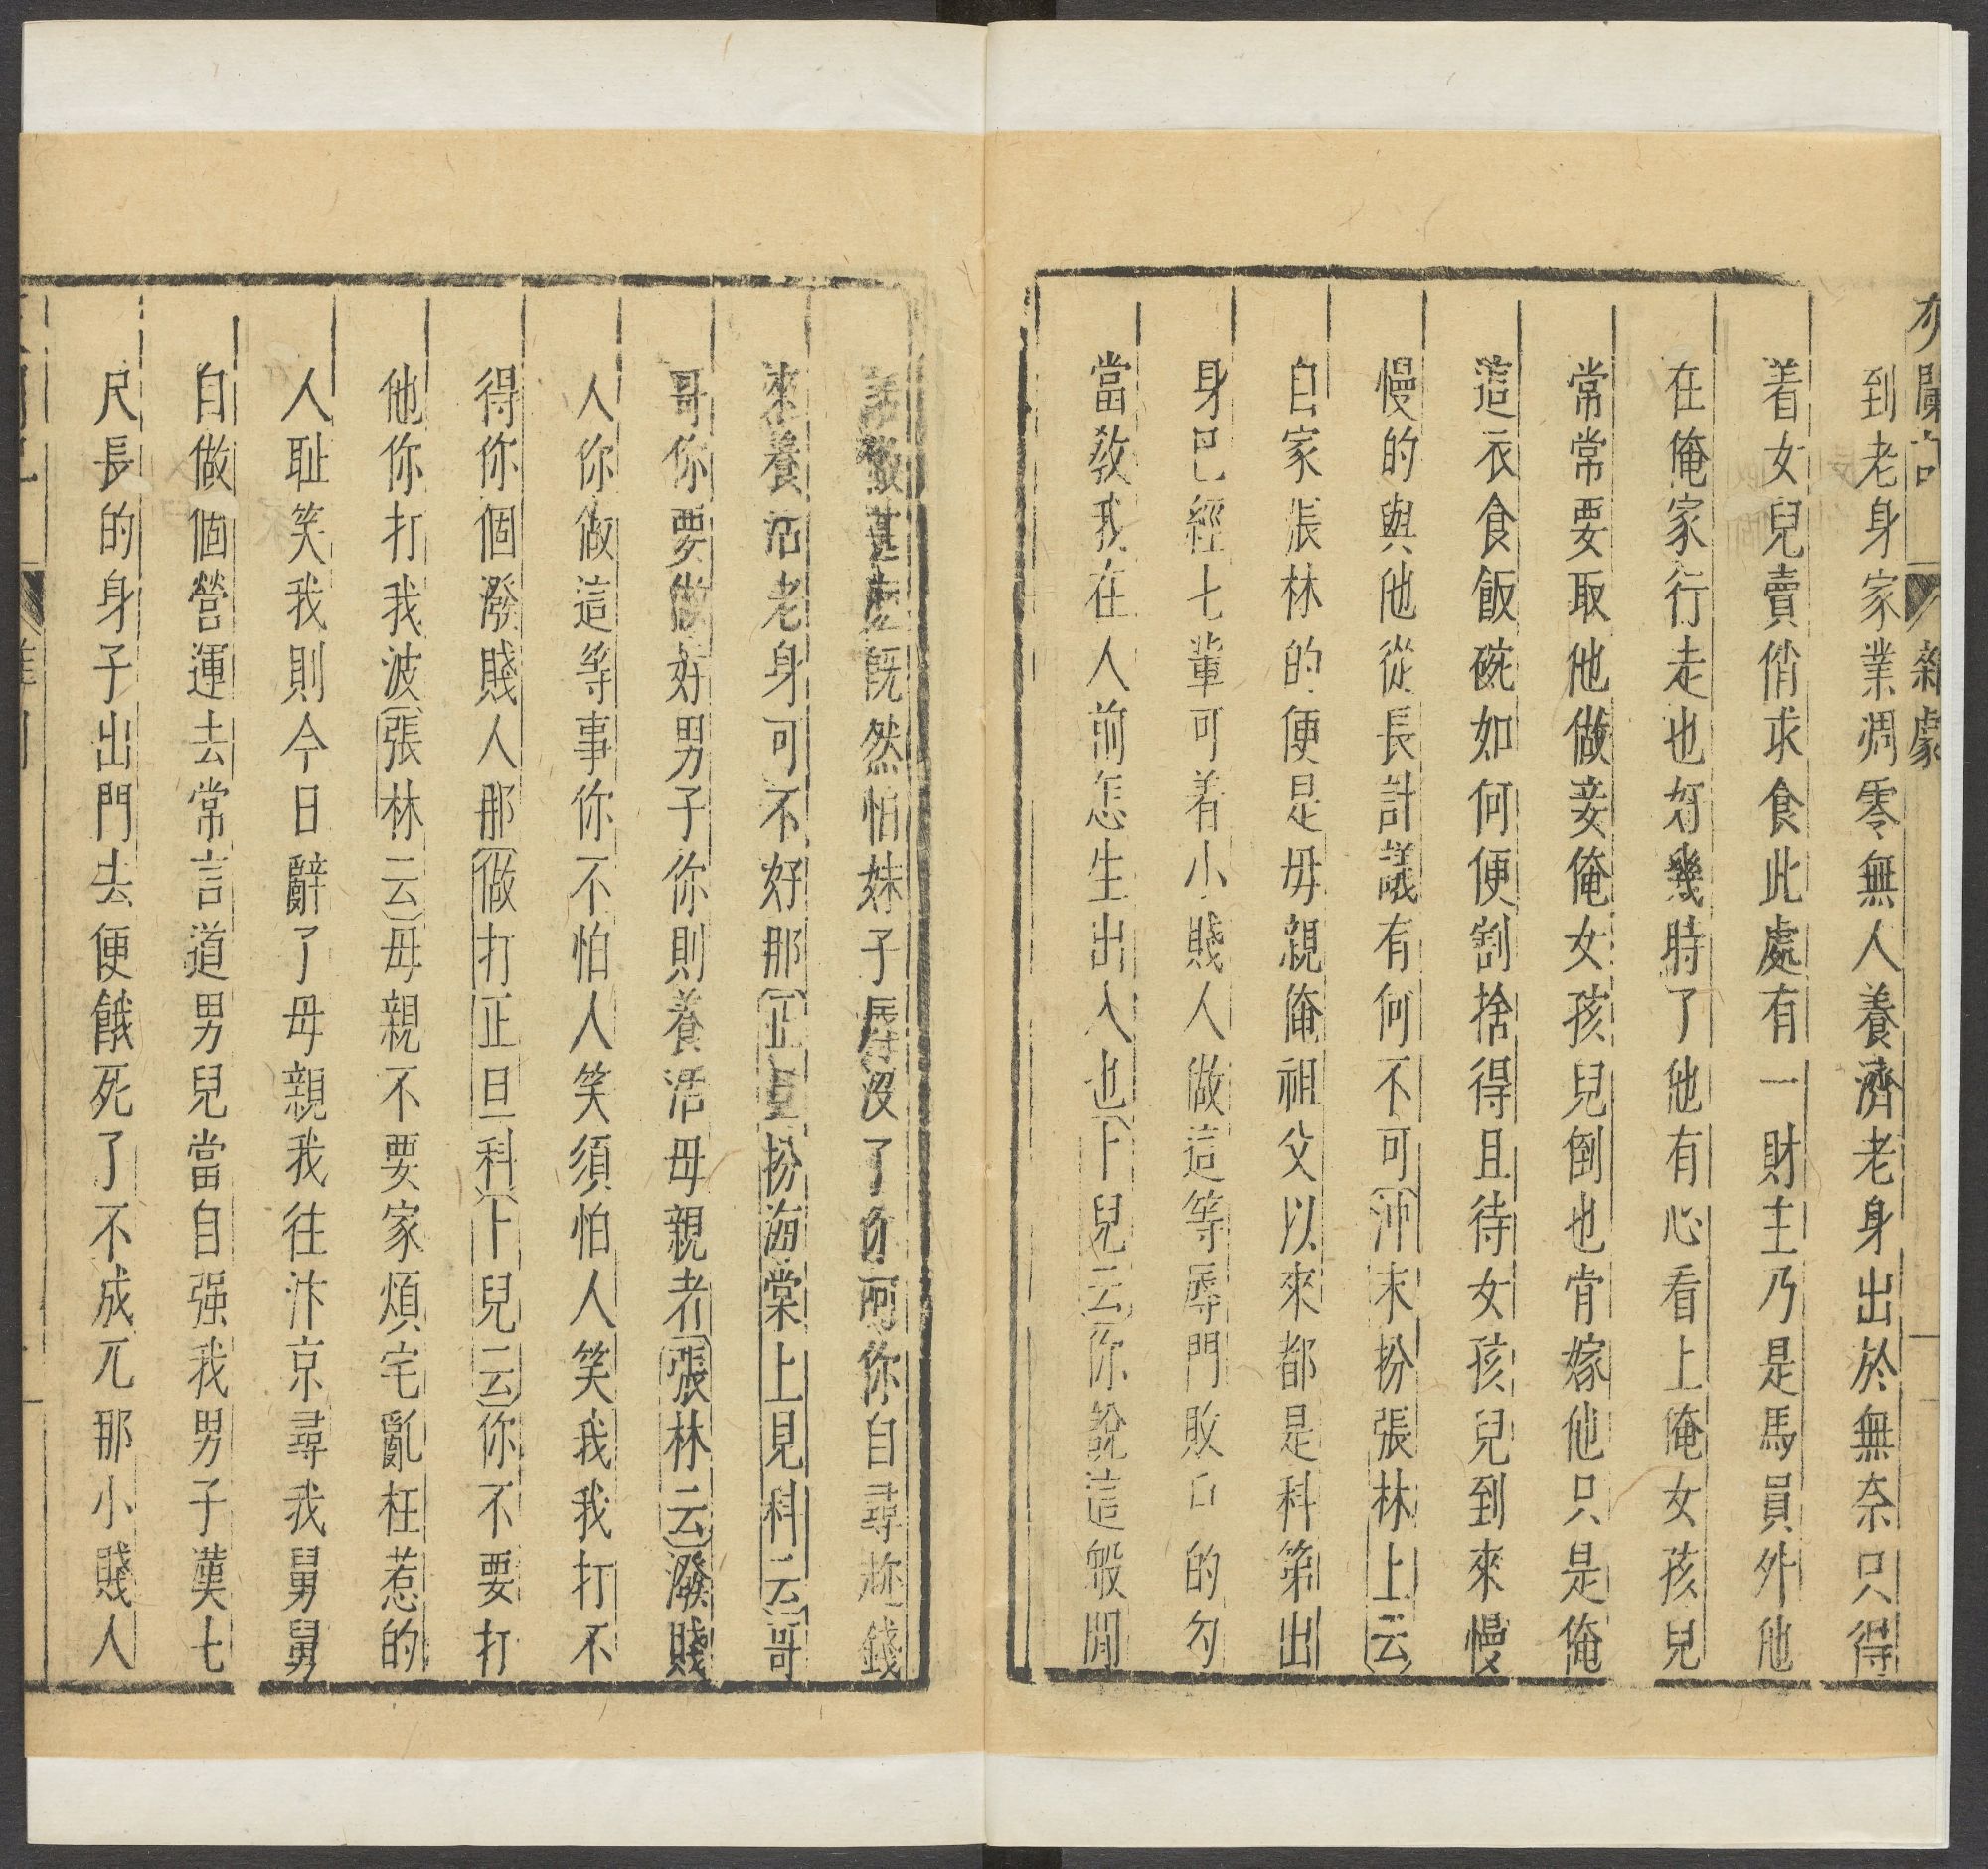 雜劇
到老身家業凋零無人養濟老身出於無奈只得
着女兒賣俏求食此處有一財主乃是馬員外他
在俺家行走也好幾時了他有心看上俺女孩兒
常常要取他做妾俺女孩兒倒也肯嫁他只是俺
這衣食飯碗如何便割捨得且待女孩兒到來慢
慢的與他從長計議有何不可沖末扮張林上云
自家張林的便是母親俺祖父以來都是科第出
身已經七輩可着小賤人做這等辱門敗戶的勾
當教我在人前怎生出入也卜兒云你說這般閒
話做甚麼既然怕妹子辱沒了你呵你自尋趂錢
來養活老身可不好那正旦扮海棠上見科云哥
哥你要做好男子你則養活母親者張林云潑賤
人你做這等事你不怕人笑須怕人笑我我打不
得你個潑賤人那做打正旦科卜兒云你不要打
他你打我波張林云母親不要家煩宅亂枉惹的
人耻笑我則今日辭了母親我往汴京尋我舅舅
自做個營運去常言道男兒當自强我男子漢七
尺長的身子出門去便餓死了不成兀那小賤人